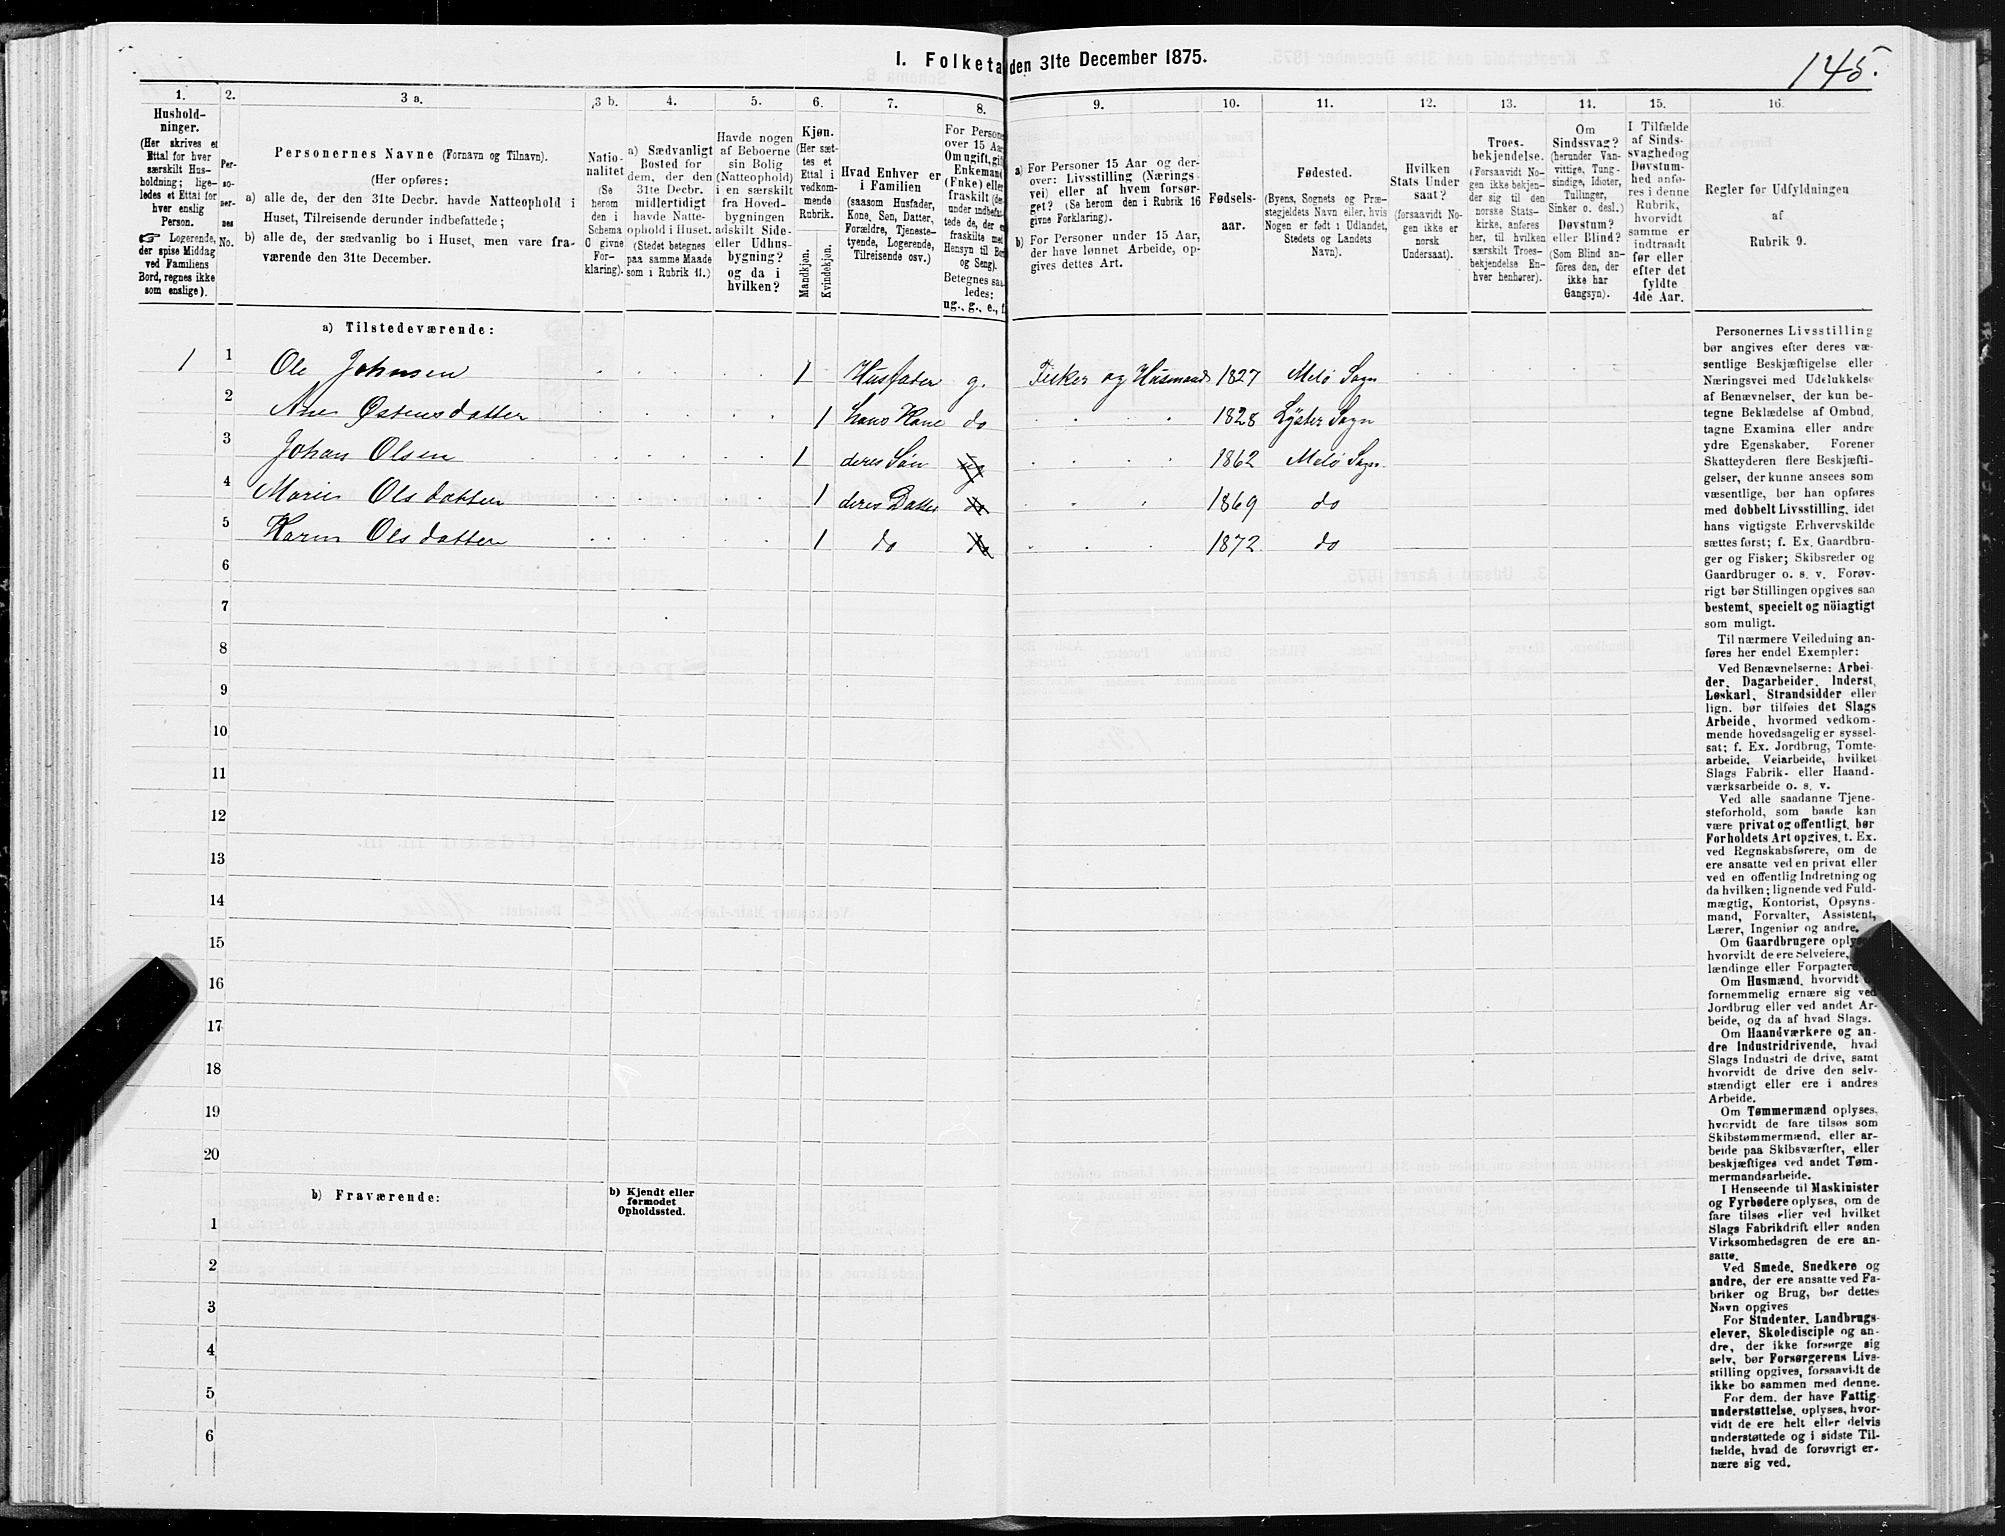 I. Folketa den 31te December 1875.
145.
1. 2. 3 a. 3 b. 4. 5. 6. 7. 8. 9. 10. 11. 12. 13. 14. 15. 16.
Hushold-
ninger.
(Her skrives et
Ettal for hver
særskilt Hus-
holdning; lige-
ledes et Ettal for
hver enslig
Person.
☞ Logerende,
der spise Middag
ved Familiens
Bord, regnes ikke
som enslige).
Per-
so-
ner-
nes
No.
Personernes Navne (Fornavn og Tilnavn).
(Her opføres:
a) alle de, der den 31te Decbr. havde Natteophold i
Huset, Tilreisende derunder indbefattede;
b) alle de, der sædvanlig bo i Huset, men vare fra-
værende den 31te December.
Natio-
nalitet
(Se
herom
den i
Schema
C givne
For-
klaring).
a) Sædvanligt
Bosted for
dem, der den
31te Decbr.
midlertidigt
havde Natte-
ophold i Huset.
(Stedet betegnes
paa samme Maade
som i Rubrik 11.)
Havde nogen
af Beboerne
sin Bolig
(Natteophold)
i en særskilt
fra Hoved-
bygningen
adskilt Side-
eller Udhus-
bygning?
og da i
hvilken?
Kjøn.
(Her sæt-
tes et
Ettal i
vedkom-
mende
Rubrik.
Mandkjøn.
Kvindekjøn.
Hvad Enhver er
i Familien
(saasom Husfader,
Kone, Søn, Datter,
Forældre, Tjeneste-
tyende, Logerende,
Tilreisende osv.)
For Persone
over 15 Aar
Om ugift, gif
Enkemand
(Fnke) eller
fraskilt (der
under indbefat
tede de, der er
fraskilte med
Hensyn til Bor
og Seng).
Betegnes saa
ledes:
ug., g., e., f.
a) For Personer 15 Aar og der-
over: Livsstilling (Nærings-
vei) eller af hvem forsør-
get? (Se herom den i Rubrik 16
givne Forklaring).
b) For Personer under 15 Aar,
der have lønnet Arbeide, op-
gives dettes Art.
Fødsels-
aar.
Fødested.
(Byens, Sognets og Præ-
stegjeldets Navn eller, hvis
Nogen er født i Udlandet,
Stedets og Landets
Navn).
Hvilken
Stats Under
saat?
(forsaavidt No-
gen ikke er
norsk
Undersaat).
Troes-
bekjendelse.
(Forsaavidt No-
gen ikke bekjen-
der sig til den
norske Stats-
kirke, anføres
her, til hvilken
særskilt Troes-
bekjendelse En-
hver henhører).
Om
Sindssvag?
(herunder Van-
vittige, Tung-
sindige, Idioter,
Tullinger,
Sinker o. desl.)
Døvstum?
eller Blind?
(Som Blind an-
føres den, der
ikke har
Gangsyn).
I Tilfælde
af Sinds-
svaghed og
Døvstum-
hed anfø-
res i denne
Rubrik,
hvorvidt
samme er
indtraadt
før eller
efter det
fyldte
4de Aar.
Regler for Udfyldningen
af
Rubrik 9.
a) Tilstedeværende:
1 1 Ole Johnsen 1 Husfader g. Fisker og Husmand 1827 Melø Sogn
2 Ane Østensdatter 1 hans Kone do 1828 Lyster Sogn
3 Johan Olsen 1 deres Søn ug 1862 Melø Sogn
4 Marie Olsdatter 1 deres Datter do 1869 do
5 Karen Olsdatter 1 do do 1872 do
6
7
8
9
10
11
12
13
14
15
16
17
18
19
20
b) Fraværende:
b) Kjendt eller
formodet
Opholdssted.
1
2
3
4
5
6
Personernes Livsstilling
bør angives efter deres væ-
sentlige Beskjæftigelse eller
Næringsvei med Udelukkelse
af Benævnelser, der kun be-
tegne Beklædelse af Ombud,
tagne Examina eller andre
ydre Egenskaber. Forener
Skatteyderen flere Beskjæfti-
gelser, der kunne ansees som
væsentlige, bør han opføres
med dobbelt Livsstilling, idet
hans vigtigste Erhvervskilde
sættes først; f. Ex. Gaardbru-
ger og Fisker; Skibsreder og
Gaardbruger o. s. v. Forøv-
rigt bør Stillingen opgives saa
bestemt, specielt og nöiagtigt
som muligt.
Til nærmere Veiledning an-
føres her endel Exempler:
Ved Benævnelserne: Arbei-
der, Dagarbeider, Inderst,
Løskarl, Strandsidder eller
lign. bør tilføies det Slags
Arbeide, hvormed vedkom-
mende hovedsagelig er syssel-
sat; f. Ex. Jordbrug, Tomte-
arbeide, Veiarbeide, hvilket
Slags Fabrik- eller Haand-
værksarbeide o. s. v.
Ved alle saadanne Tjene-
steforhold, som baade kan
være privat og offentligt, bør
Forholdets Art opgives, t. Ex.
ved Regnskabsførere, om de
ere ansatte ved en privat eller
ved en offentlig Indretning og
da hvilken; lignende ved Fuld-
mægtig, Kontorist, Opsyns-
mand, Forvalter, Assistent,
Lærer, Ingeniør og andre.
Om Gaardbrugere oplyse
hvorvidt de ere Selveiere,
lændinge eller Forpagtere
Om Husmænd, hvorvidt
fornemmelig ernære sig ved
Jordbrug eller ved andet Ar-
beide, og da af hvad Slags.
Om Haandværkere og an-
dre Industridrivende, hvad
Slags Industri de drive, samt
hvorvidt de drive den selv-
stændigt eller ere i andres
Arbeide.
Om Tømmermænd oplyses,
hvorvidt de fare tilsøs som
Skibstømmermænd, eller ar-
beide paa Skibsværfter, eller
beskjæftiges ved andet Tøm-
mermandsarbeide.
I Henseende til Maskinister
og Fyrbødere oplyses, om de
fare tilsøs eller ved hvilket
Slags Fabrikdrift eller anden
Virksomhedsgren de ere an-
satte.
Ved Smede, Snedkere og
andre, der ere ansatte ved Fa-
briker og Brug, bør dettes
Navn opgives
For Studenter, Landbrugs-
elever, Skoledisciple og an-
dre, der ikke forsørge sig
selv, bør Forsørgerens Livs-
stilling opgives, forsaavidt de
ikke bo sammen med denne.
For dem, der have Fattig-
understøttelse, oplyses, hvor-
vidt de ere helt eller delvis
understøttede og i sidste Til-
fælde, hvad de forøvrigt er-
nære sig ved.